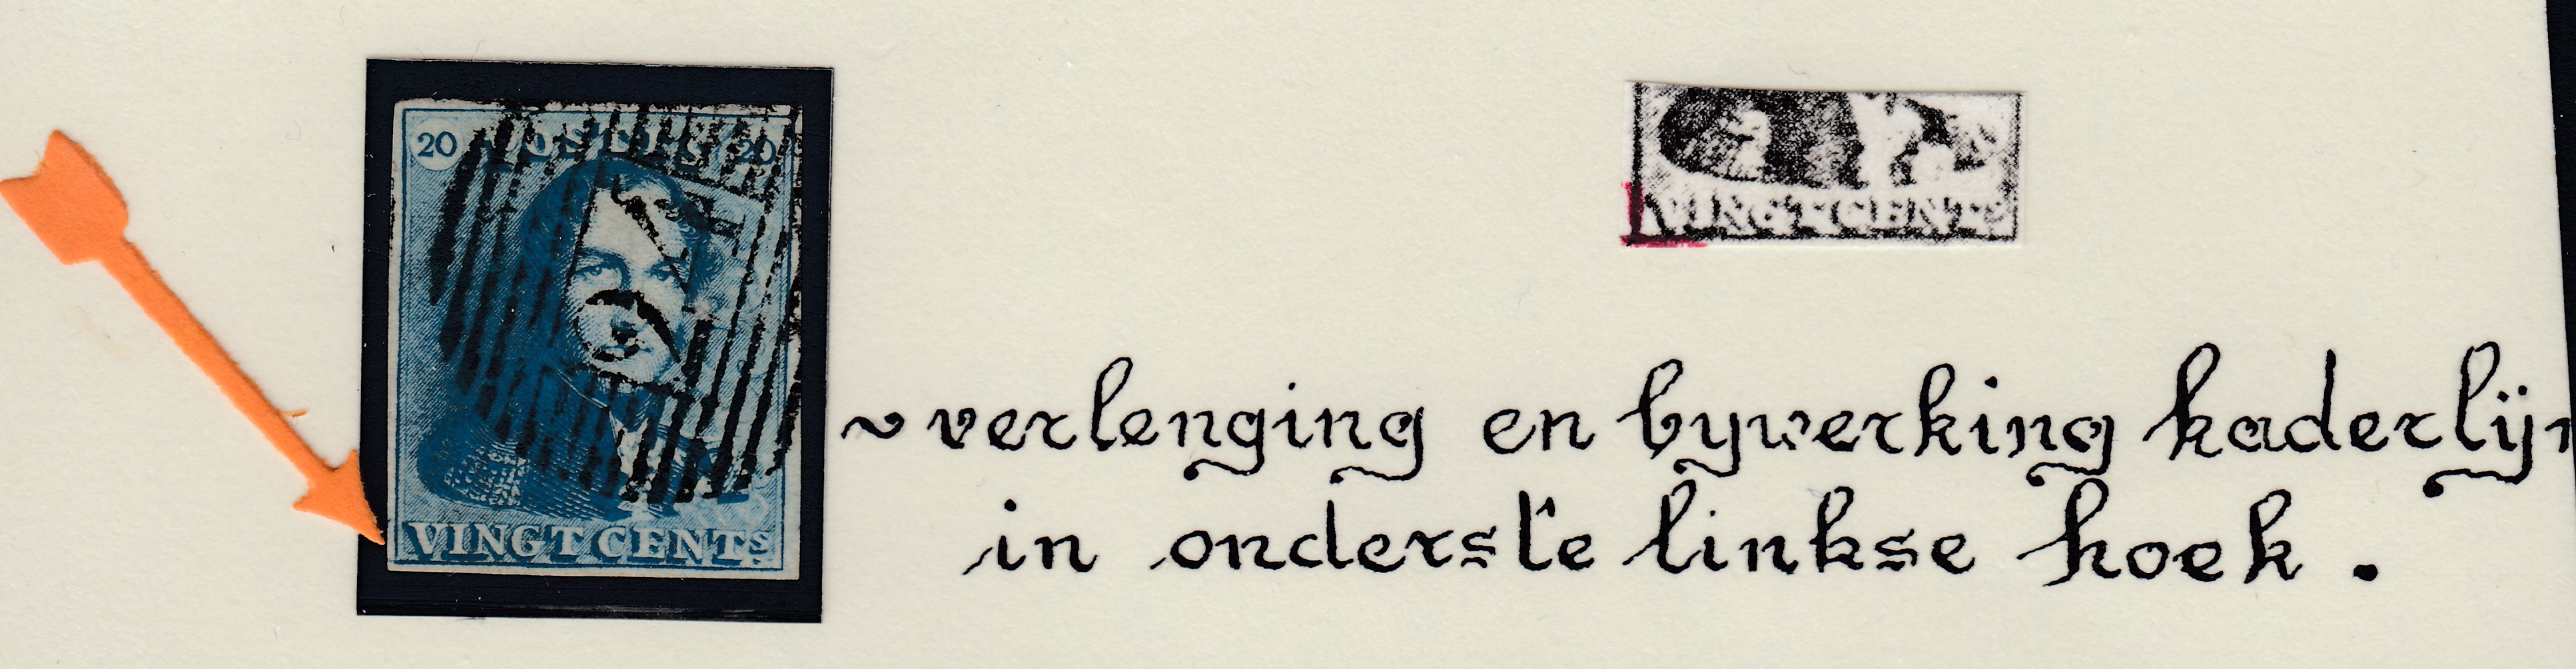 20 POSTES 20
VINGT CENTS
VINGT CENTS
~ verlenging en bywerking kaderlijn
in onderste linkse hoek.